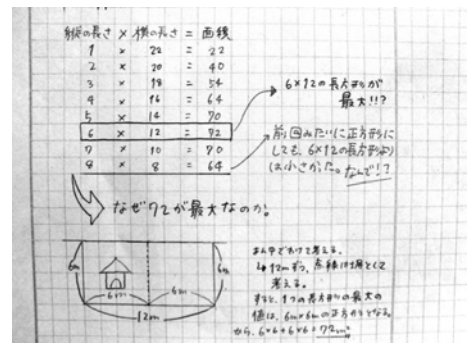 縦の長さ × 横の長さ = 面積
1 × 22 = 22
2 × 20 = 40
3 × 18 = 54
4 × 16 = 64
5 × 14 = 70
6 × 12 = 72
7 × 10 = 70
8 × 8 = 64
6×12の長方形が
最大!!?
前回みたいに正方形に
しても、6×12の長方形より
は小さかった。なんで!?
なぜ72が最大なのか。
6m
6m
6m
6m
12m
まん中でわけて考える。
↳12mずつ、点線は塀として
考える。
すると、1つの長方形の最大の
値は、6m×6mの正方形となる。
から、6×6+6×6=72m²